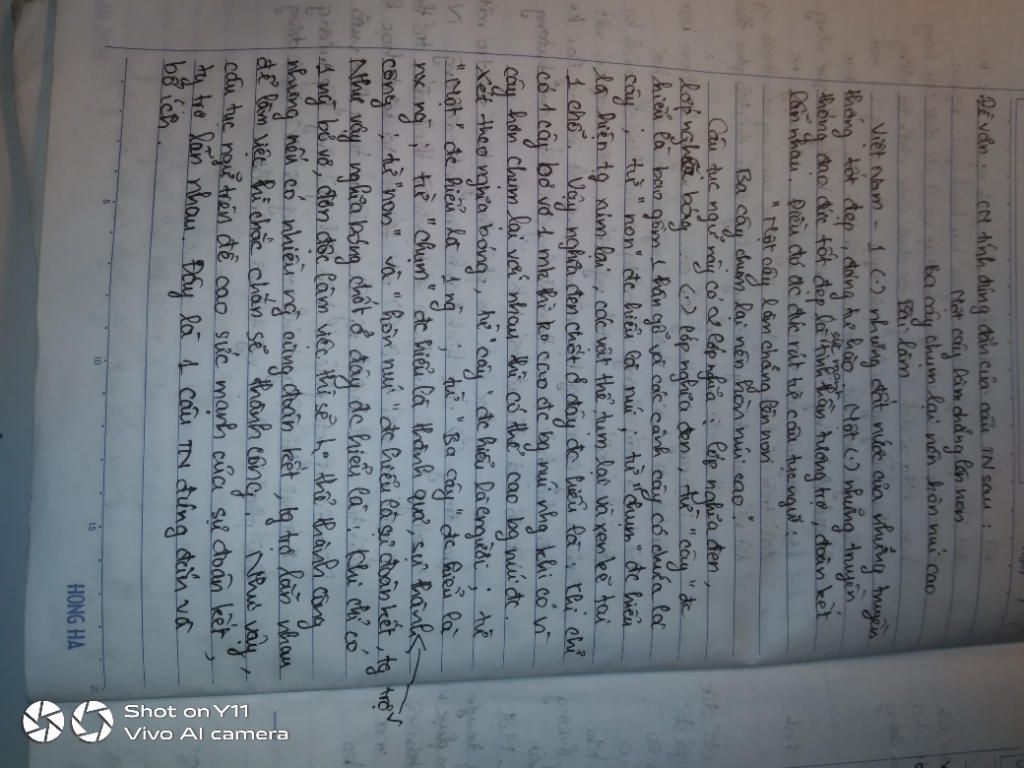 Đề văn: CN tính đúng đắn của câu TN sau:
Một cây làm chẳng lên non
Ba cây chụm lại nên hòn núi cao
Bài làm
Việt Nam - 1 (-) những đất nước của những truyền
thống tốt đẹp, đáng tự hào. Một (-) những truyền
thống đạo đức tốt đẹp là tinh thần tương trợ, đoàn kết
lẫn nhau. Điều đó đc đúc rút từ câu tục ngữ:
"Một cây làm chẳng lên non
Ba cây chụm lại nên hòn núi cao"
Câu tục ngữ này có 2 lớp nghĩa: lớp nghĩa đen,
lớp nghĩa bóng. (-) lớp nghĩa đen, từ "cây" đc
hiểu là bao gồm 1 thân gỗ với các cành cây có chứa lá
cây; từ "non" đc hiểu là núi; từ "chụm" đc hiểu
là hiện tg xúm lại, các vật thể tụm lại và xen kẽ tại
1 chỗ. Vậy nghĩa đen chốt ở đây đc hiểu là: Khi chỉ
có 1 cây bơ vơ 1 mk thì ko cao đc bg núi nhg khi có vì
cây hơn chụm lại với nhau thì có thể cao bg núi đc.
Xét theo nghĩa bóng, từ "cây" đc hiểu là con người; từ
"Một" đc hiểu là 1 ng; từ "Ba cây" đc hiểu là
nx ng; từ "chụm" đc hiểu là thành quả, sự thành
công; từ "non" và "hòn núi" đc hiểu là sự đoàn kết, tg trợ
Như vậy nghĩa bóng chốt ở đây đc hiểu là: Khi chỉ có
1 ng bơ vơ, đơn độc làm việc thì sẽ ko thể thành công
nhưng nếu có nhiều ng cùng đoàn kết, tg trợ lẫn nhau
để làm việc thì chắc chắn sẽ thành công. Như vậy,
câu tục ngữ trên đề cao sức mạnh của sự đoàn kết,
tg trợ lẫn nhau. Đây là 1 câu TN đúng đắn và
bổ ích.
HONG HA
5
10
15
20
Shot on Y11
Vivo AI camera